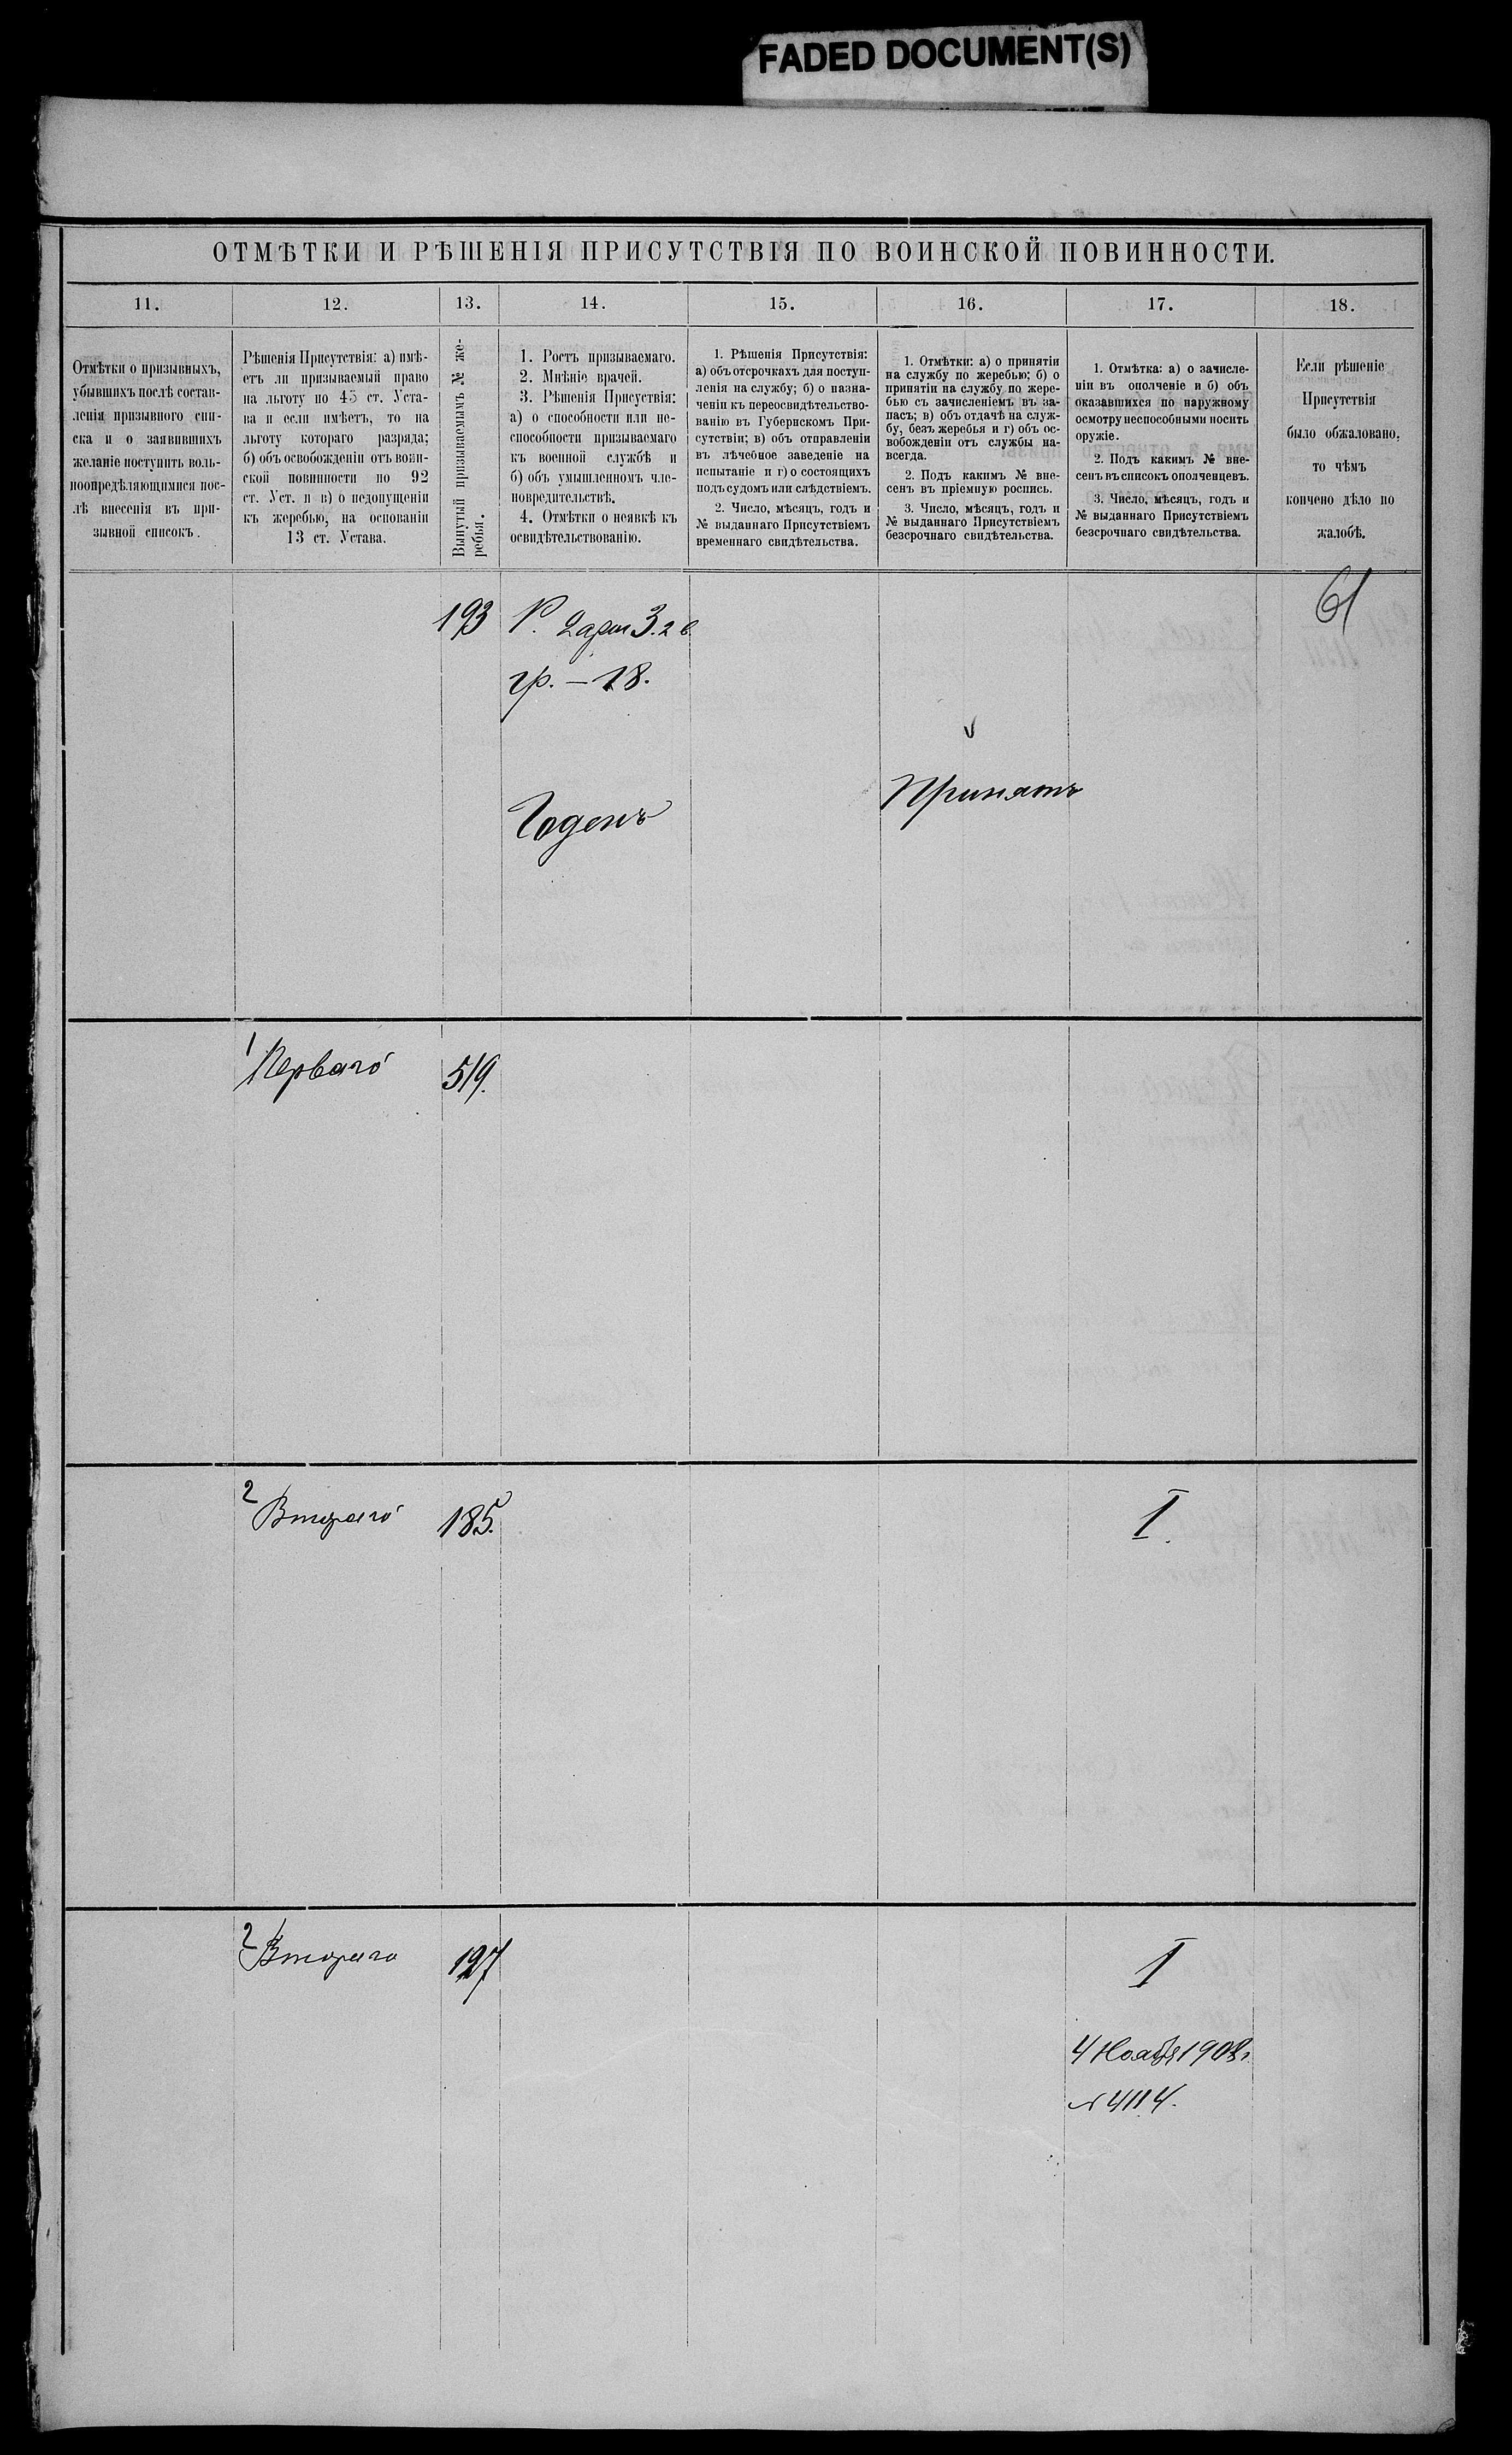 FADED DOCUMENT(S)
ОТМѢТКИ И РѢШЕНІЯ ПРИСУТСТВІЯ ПО ВОИНСКОЙ ПОВИННОСТИ.
11.
12.
13.
14.
15.
16.
17.
18.
Отмѣтки о призывныхъ,
убывшихъ послѣ состав-
ленія призывного спи-
ска и о заявившихъ
желаніе поступить воль-
ноопредѣляющимися пос-
лѣ внесенія въ при-
зывной списокъ.
Рѣшенія Присутствія: а) имѣ-
етъ ли призываемый право
на льготу по 45 ст. Уста-
ва и если имѣетъ, то на
льготу котораго разряда;
б) объ освобожденіи отъ воин-
ской повинности по 92
ст. Уст. и в) о недопущеніи
къ жеребью, на основаніи
13 ст. Устава.
Вынутый призываемымъ № же-
ребья.
1. Ростъ призываемаго.
2. Мнѣніе врачей.
3. Рѣшенія Присуствія:
а) о способности или не-
способности призываемаго
къ военной службѣ и
б) объ умышленномъ чле-
новредительствѣ.
4. Отмѣтки о неявкѣ къ
освидѣтельствованію.
1. Рѣшенія Присутствія:
а) объ отсрочкахъ для поступ-
ленія на службу; б) о назна-
ченіи къ переосвидѣтельство-
ванію въ Губернскомъ При-
сутствіи; в) объ отправленіи
въ лѣчебное заведеніе на
испытаніе и г) о состоящихъ
подъ судомъ или слѣдствіемъ.
2. Число, мѣсяцъ, годъ и
№ выданнаго Присутствіемъ
временнаго свидѣтельства.
1. Отмѣтки: а) о принятіи
на службу по жеребью; б) о
принятіи на службу по жере-
бью съ зачисленіемъ въ за-
пасъ; в) объ отдачѣ на служ-
бу, безъ жеребья и г) объ ос-
вобожденіи отъ службы на-
всегда.
2. Подъ какимъ № вне-
сенъ въ пріемную роспись.
3. Число, мѣсяцъ, годъ и
№ выданнаго Присутствіемъ
безсрочнаго свидѣтельства.
1. Отмѣтка: а) о зачисле-
ніи въ ополченіе и б) объ
оказавшихся по наружному
осмотру неспособными носить
оружіе.
2. Подъ какимъ № вне-
сенъ въ списокъ ополченцевъ.
3. Число, мѣсяцъ, годъ и
№ выданнаго Присутствіемъ
безсрочнаго свидѣтельства.
Если рѣшеніе
Присутствія
было обжаловано,
то чѣмъ
кончено дѣло по
жалобѣ.
61
193
Р. 2 арш 3.2 в.
гр. – 18.
Годенъ
Принятъ
1
Перваго
519.
2
Втораго
185.
I.
2
Втораго
127
I
4 Ноября 1903 г.
№ 4114.